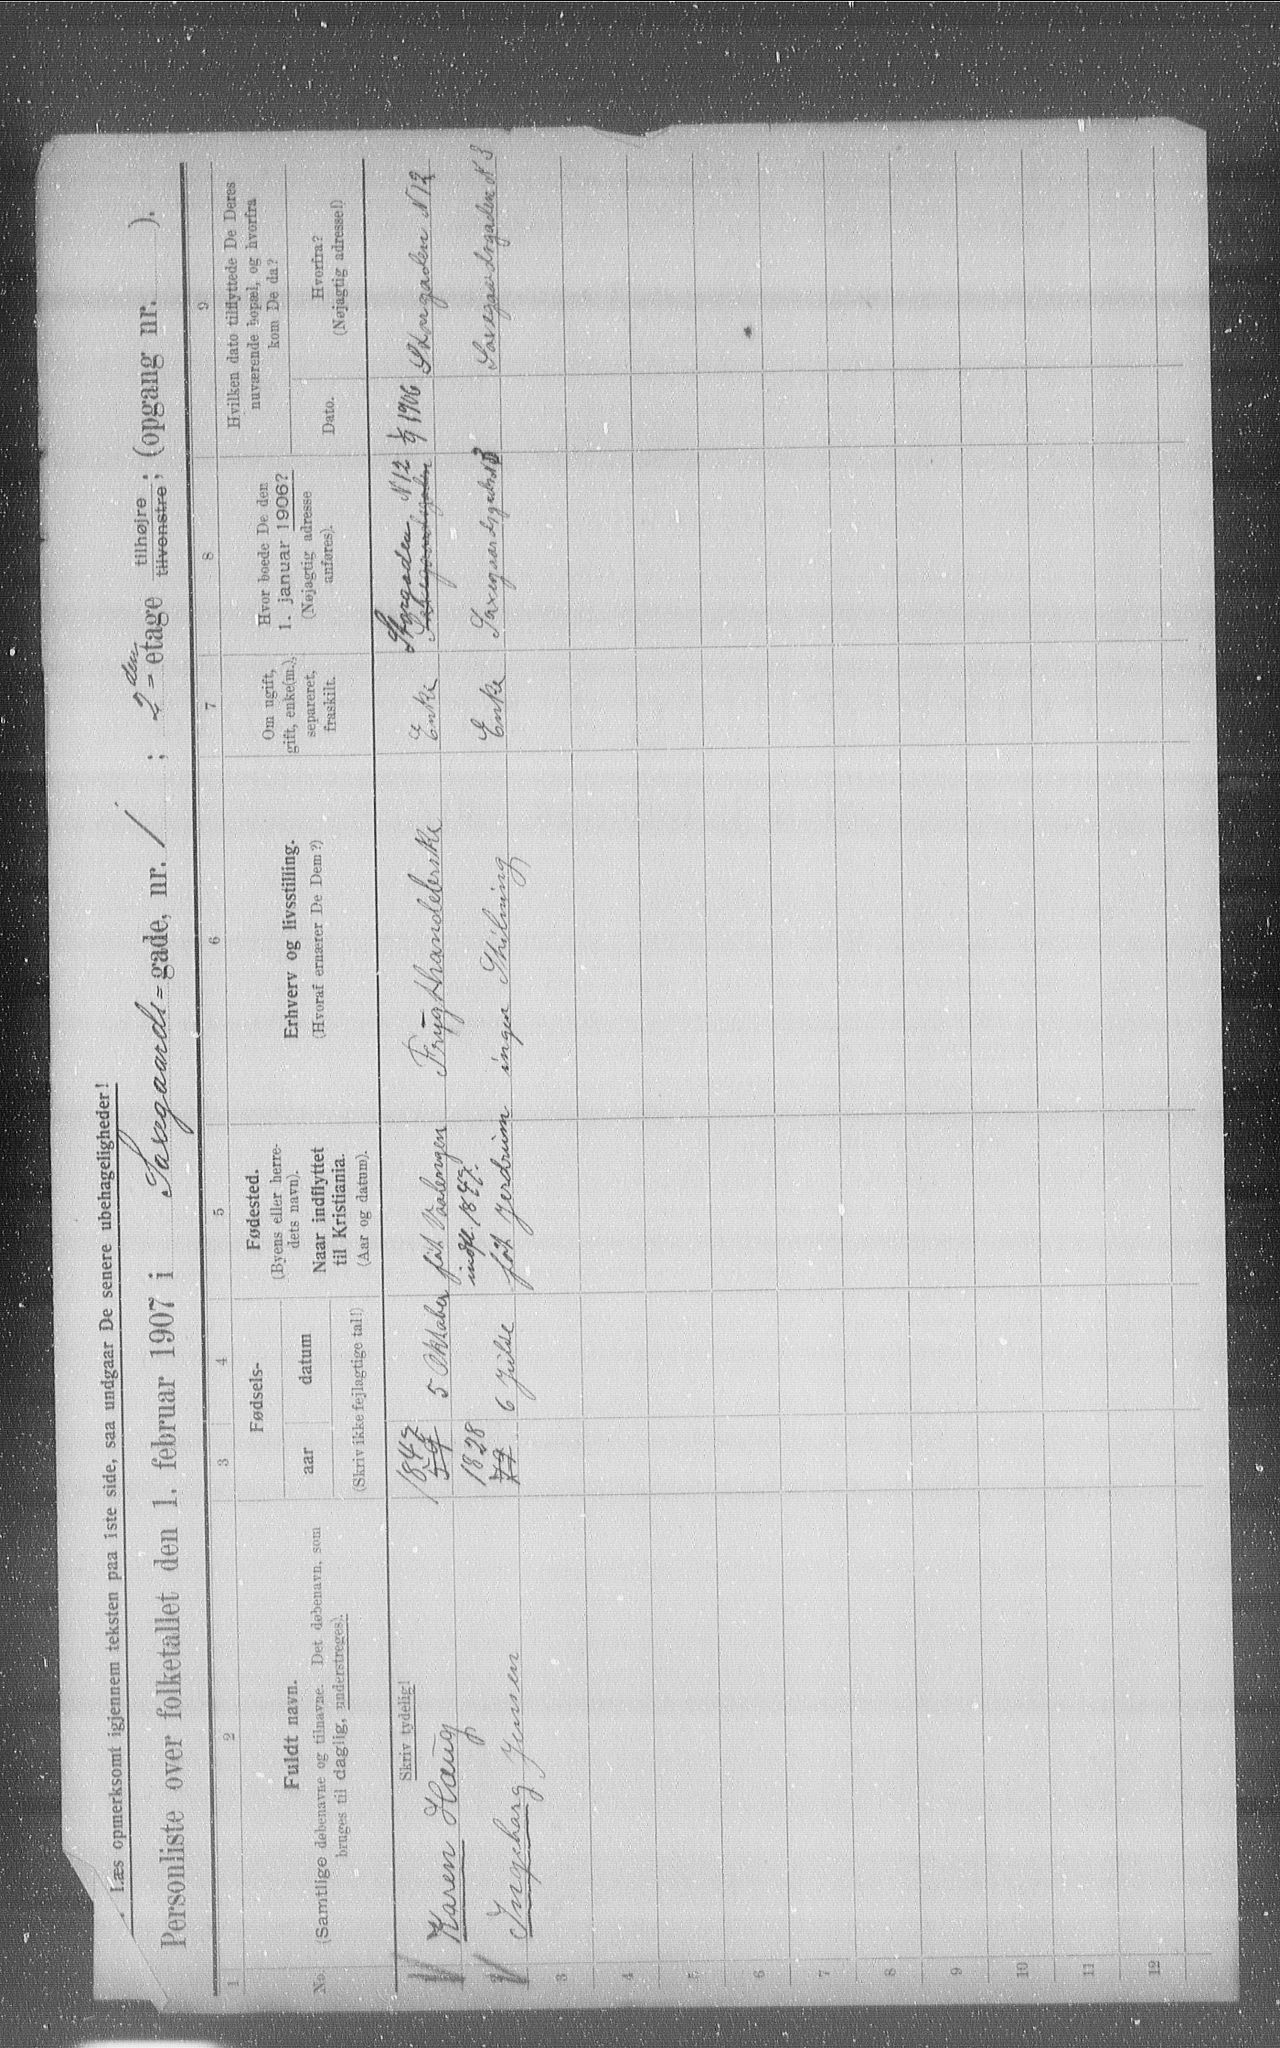 Læs opmerksomt igjennem teksten paa 1ste side, saa undgaar De senere ubehageligheder!
Personliste over folketallet den 1. februar 1907 i Saxegaards=gade, nr. 1; 2den= etage tilhøjre tilvenstre; (opgang nr. ).
1 2 3 4 5 6 7 8 9
No. Fuldt navn. (Samtlige døbenavne og tilnavne. Det døbenavn, som bruges til daglig, understreges).
Fødsels- aar datum (Skriv ikke fejlagtige tal!)
Fødested. (Byens eller herredets navn). Naar indflyttet til Kristiania. (Aar og datum).
Erhverv og livsstilling. (Hvoraf ernærer De Dem?)
Om ugift, gift, enke(m.), separeret, fraskilt.
Hvor boede De den 1. januar 1906? (Nøjagtig adresse anføres).
Hvilken dato tilflyttede De Deres nuværende bopæl, og hvorfra kom De da?
Dato. Hvorfra? (Nøjagtig adresse!)
Skriv tydelig!
Karen Haug 1847 59 5 Oktober føt Vaalengen indfl. 1847. Frugthandlerske Enke Storgaden N 12 1/9 1906 Storgaden N 12
Ingeborg Jensen 1828 79 6 Julie føt Jerdrum ingen Stilning Enke Saxegaardsgaden 3 Saxegaardsgaden N 3
3
4
5
6
7
8
9
10
11
12